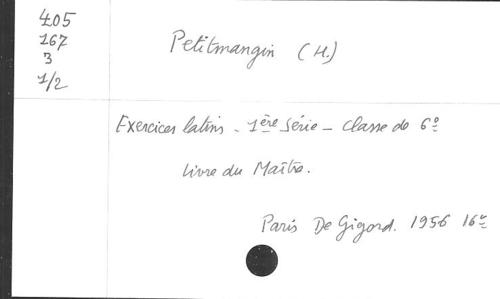 405
167
3
1/2
Petitmangin (H.)
Exercices latins - 1ère série - Classe de 6e
Livre du Maître.
Paris De Gigord. 1956 16e